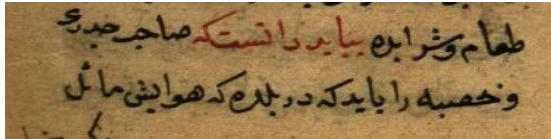 طعام و شراب ده بباید دانست که صاحب جدری
و حصبه را باید که در بلده که هوایش مائل